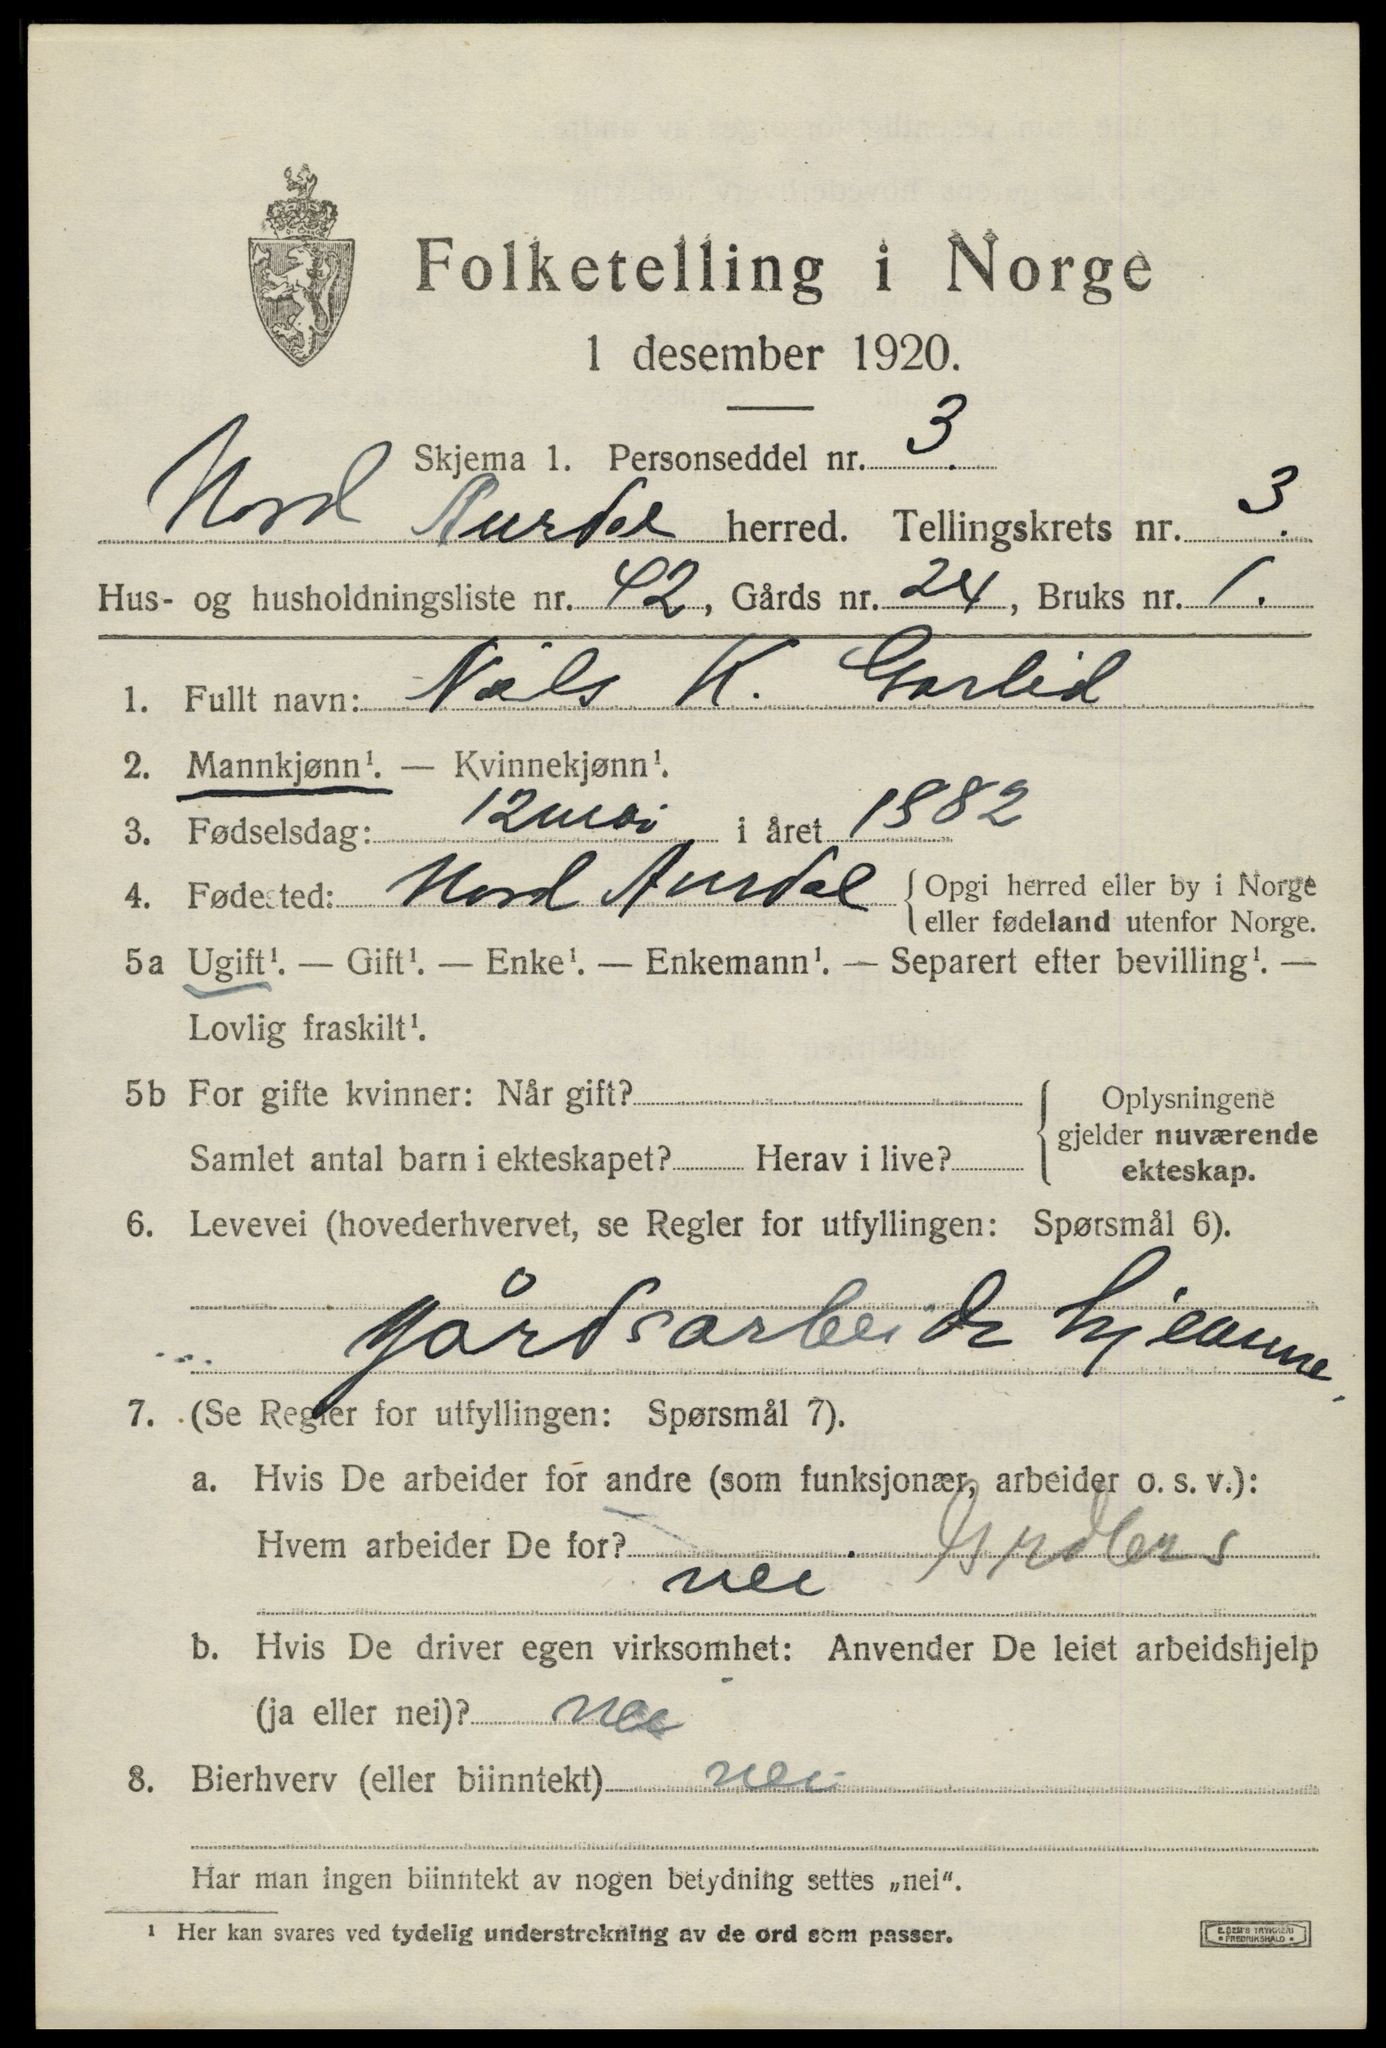 Folketelling i Norge
1 desember 1920.
Skjema 1. Personseddel nr. 3.
Nord Aurdal herred. Tellingskrets nr. 3.
Hus- og husholdningsliste nr. 42, Gårds nr. 24, Bruks nr. 1.
1. Fullt navn: Nils K. Garlid
2. Mannkjønn¹. — Kvinnekjønn¹.
3. Fødselsdag: 12 mai i året 1882
4. Fødested: Nord Aurdal { Opgi herred eller by i Norge
eller fødeland utenfor Norge.
5a Ugift¹. — Gift¹. — Enke¹. — Enkemann¹. — Separert efter bevilling¹. —
Lovlig fraskilt¹.
5b For gifte kvinner: Når gift?
Samlet antal barn i ekteskapet? Herav i live?
{ Oplysningene
gjelder nuværende
ekteskap.
6. Levevei (hovederhvervet, se Regler for utfyllingen: Spørsmål 6).
gårdsarbeide hjemme.
7. (Se Regler for utfyllingen: Spørsmål 7).
a. Hvis De arbeider for andre (som funksjonær, arbeider o. s. v.):
Hvem arbeider De for?
nei
b. Hvis De driver egen virksomhet: Anvender De leiet arbeidshjelp
(ja eller nei)? nei
8. Bierhverv (eller biinntekt) nei
Har man ingen biinntekt av nogen betydning settes „nei“.
¹ Her kan svares ved tydelig understrekning av de ord som passer.
E. SEM'S TRYKKERI
• FREDRIKSHALD •